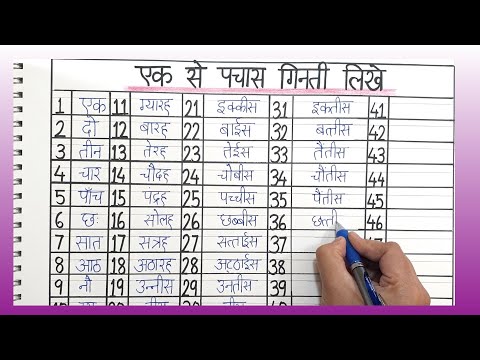 एक से पचास गिनती लिखे
1 एक 11 ग्यारह 21 इक्कीस 31 इकतीस 41
2 दो 12 बारह 22 बाईस 32 बत्तीस 42
3 तीन 13 तेरह 23 तेईस 33 तैंतीस 43
4 चार 14 चौदह 24 चोबीस 34 चौंतीस 44
5 पाँच 15 पंद्रह 25 पच्चीस 35 पैंतीस 45
6 छः 16 सोलह 26 छब्बीस 36 छत्ती 46
7 सात 17 सत्रह 27 सत्ताईस 37
8 आठ 18 अठारह 28 अट्ठाईस 38
9 नौ 19 उन्नीस 29 उनतीस 39